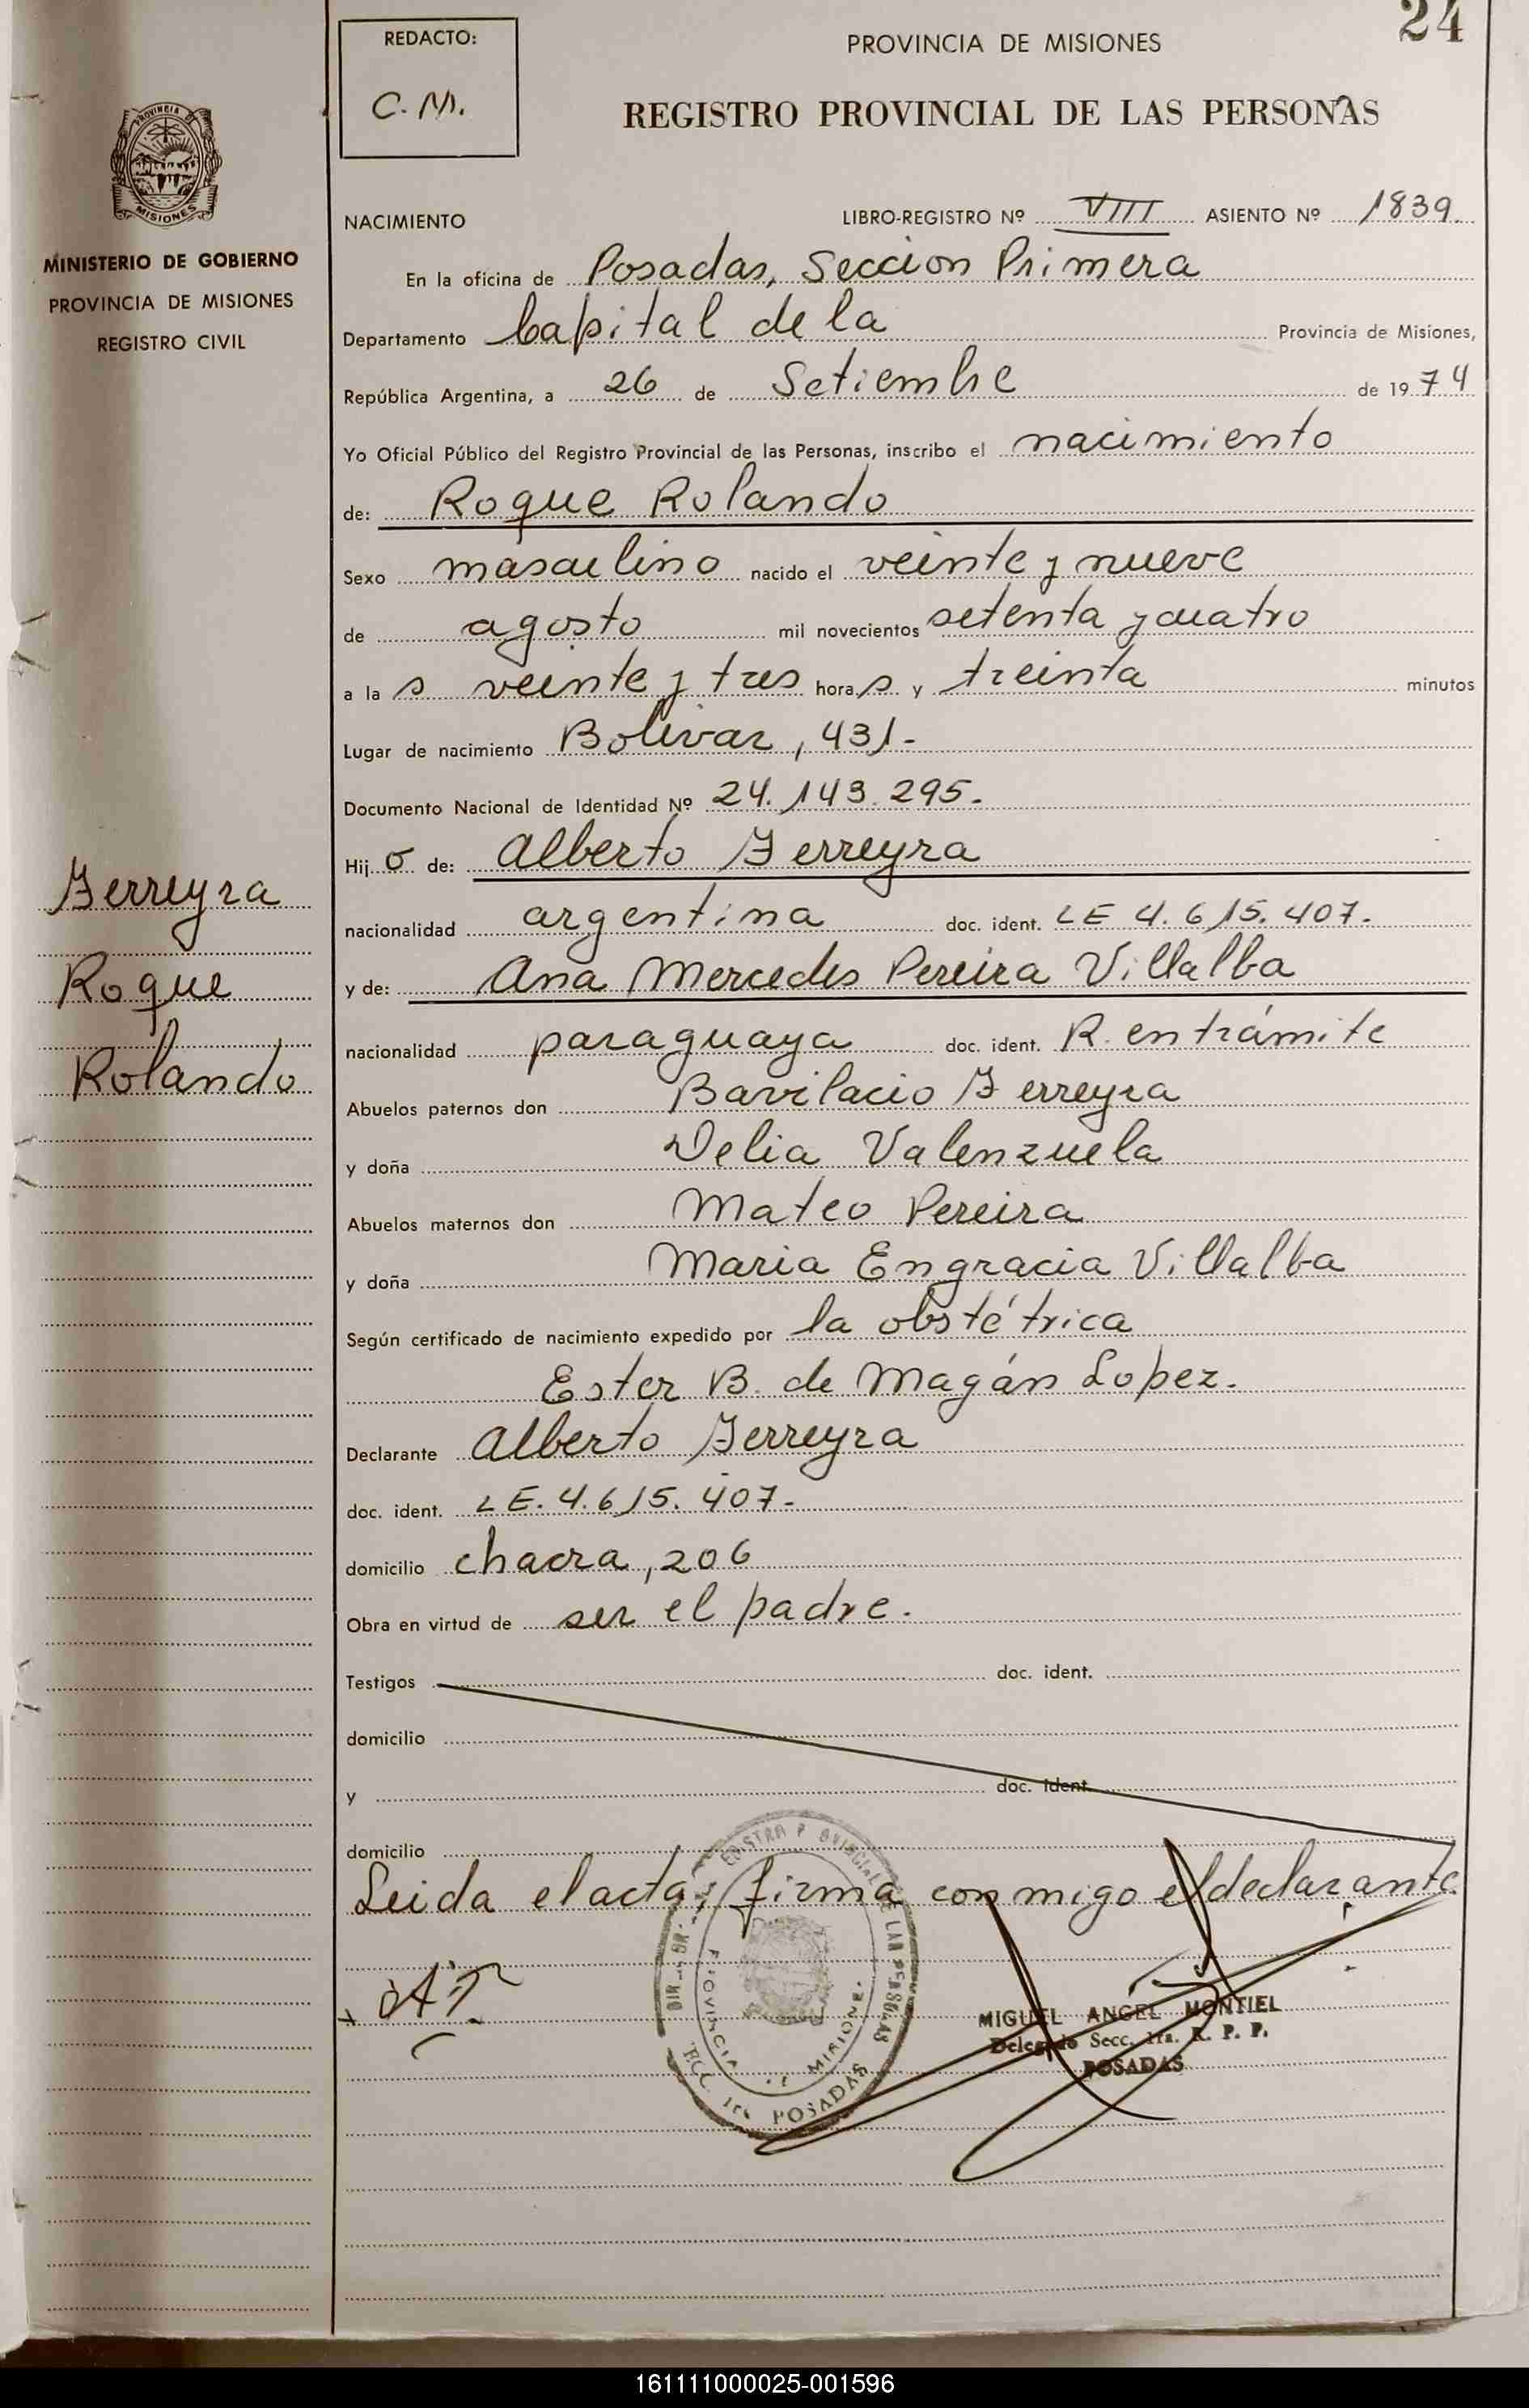 24
REDACTO:
C. M.
PROVINCIA DE MISIONES
REGISTRO PROVINCIAL DE LAS PERSONAS
PROVINCIA
MISIONES
MINISTERIO DE GOBIERNO
PROVINCIA DE MISIONES
REGISTRO CIVIL
NACIMIENTO LIBRO-REGISTRO Nº VIII ASIENTO Nº 1839
En la oficina de Posadas, Seccion Primera
Departamento Capital de la Provincia de Misiones,
República Argentina, a 26 de Setiembre de 1974
Yo Oficial Público del Registro Provincial de las Personas, inscribo el nacimiento
de: Roque Rolando
Sexo masculino nacido el veinte y nueve
de agosto mil novecientos setenta y cuatro
a la s veinte y tres hora s y treinta minutos
Lugar de nacimiento Bolivar, 431-
Documento Nacional de Identidad Nº 24.143.295-
Hij o de: Alberto Ferreyra
nacionalidad argentina doc. ident. LE 4.615.407-
y de: Ana Mercedes Pereira Villalba
nacionalidad paraguaya doc. ident. R. en trámite
Abuelos paternos don Bavilacio Ferreyra
y doña Delia Valenzuela
Abuelos maternos don Mateo Pereira
y doña Maria Engracia Villalba
Según certificado de nacimiento expedido por la obstétrica
Ester B. de Magán Lopez.
Declarante Alberto Ferreyra
doc. ident. LE. 4.615.407-
domicilio chacra, 206
Obra en virtud de ser el padre.
Testigos doc. ident.
domicilio
y doc. ident.
domicilio
Leida el acta, firma conmigo el declarante
Ferreyra
Roque
Rolando
MIGUEL ANGEL MONTIEL
Delegado Secc. 1ra. R. P. P.
POSADAS
PROVINCIA MISIONES
POSADAS
161111000025-001596